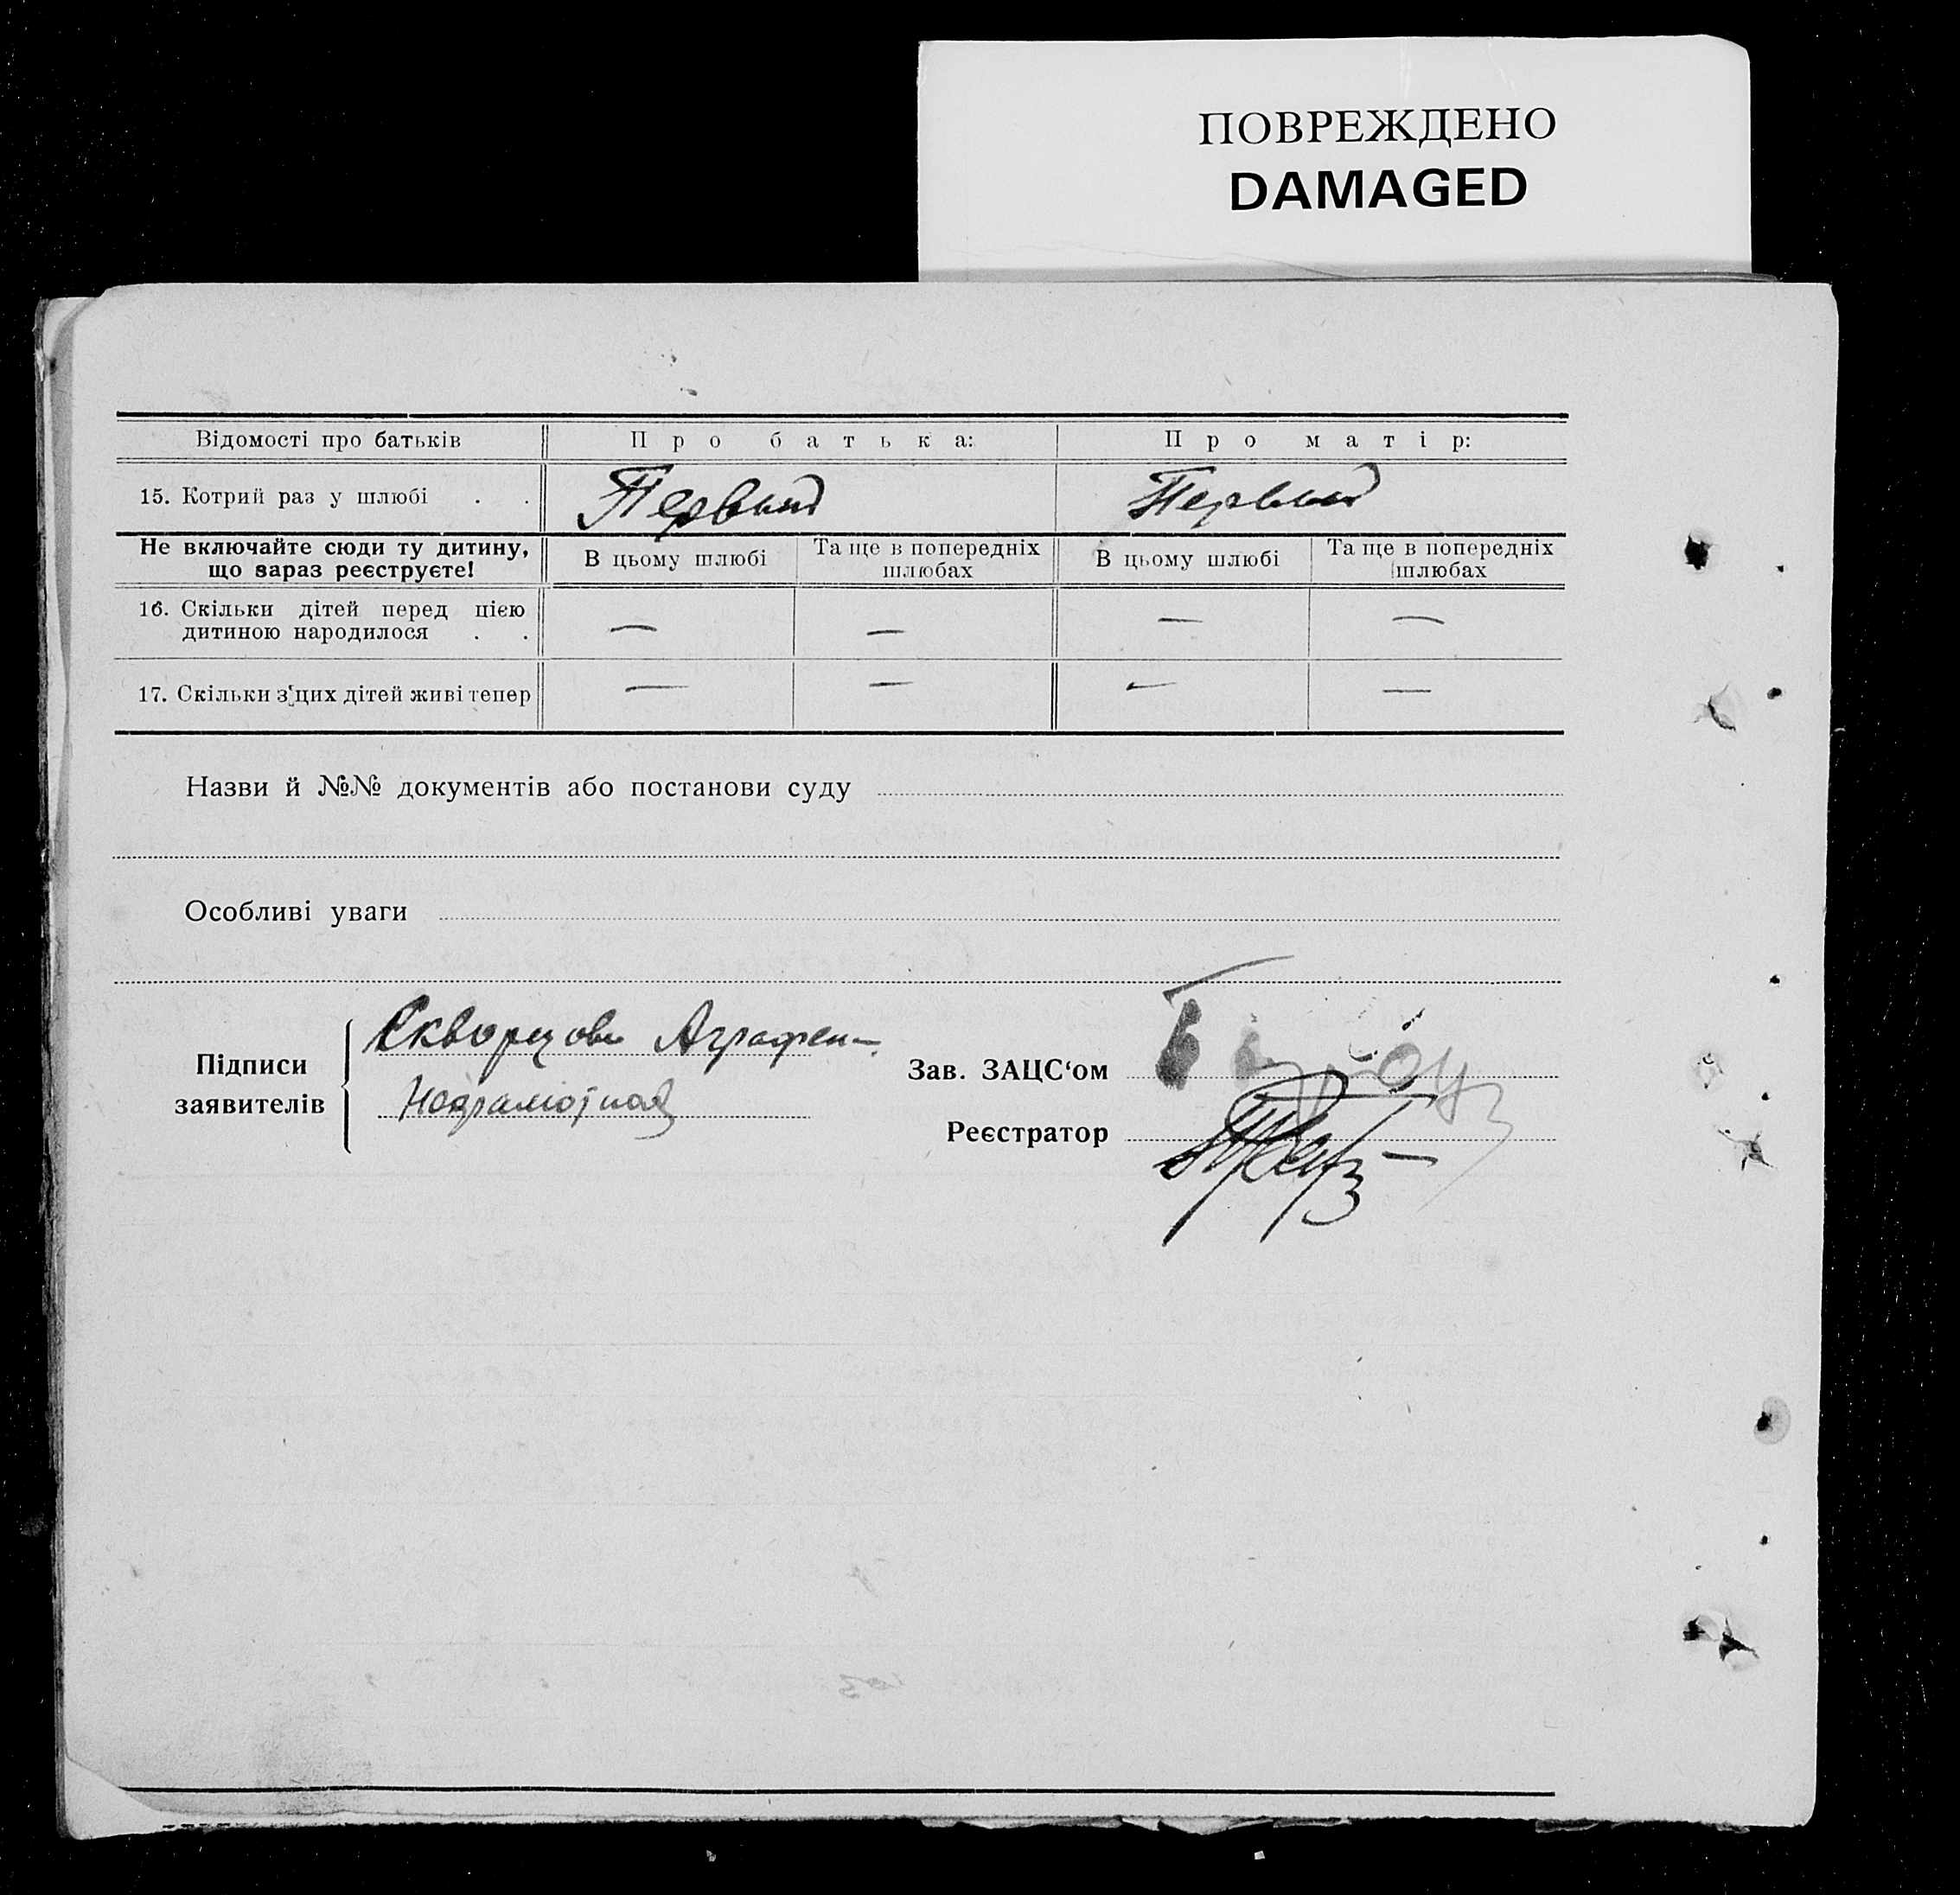 ПОВРЕЖДЕНО
DAMAGED
Відомості про батьків
Про батька:
Про матір:
15. Котрий раз у шлюбі . .
Первый
Первый
Не включайте сюди ту дитину, що зараз реєструєте!
В цьому шлюбі
Та ще в попередніх шлюбах
В цьому шлюбі
Та ще в попередніх шлюбах
16. Скільки дітей перед цією
дитиною народилося . .
— — — —
17. Скільки з цих дітей живі тепер
— — — —
Назви й №№ документів або постанови суду
Особливі уваги
Підписи заявителів
Скворцова Аграфен—
Неграмотная
Зав. ЗАЦС'ом
Реєстратор